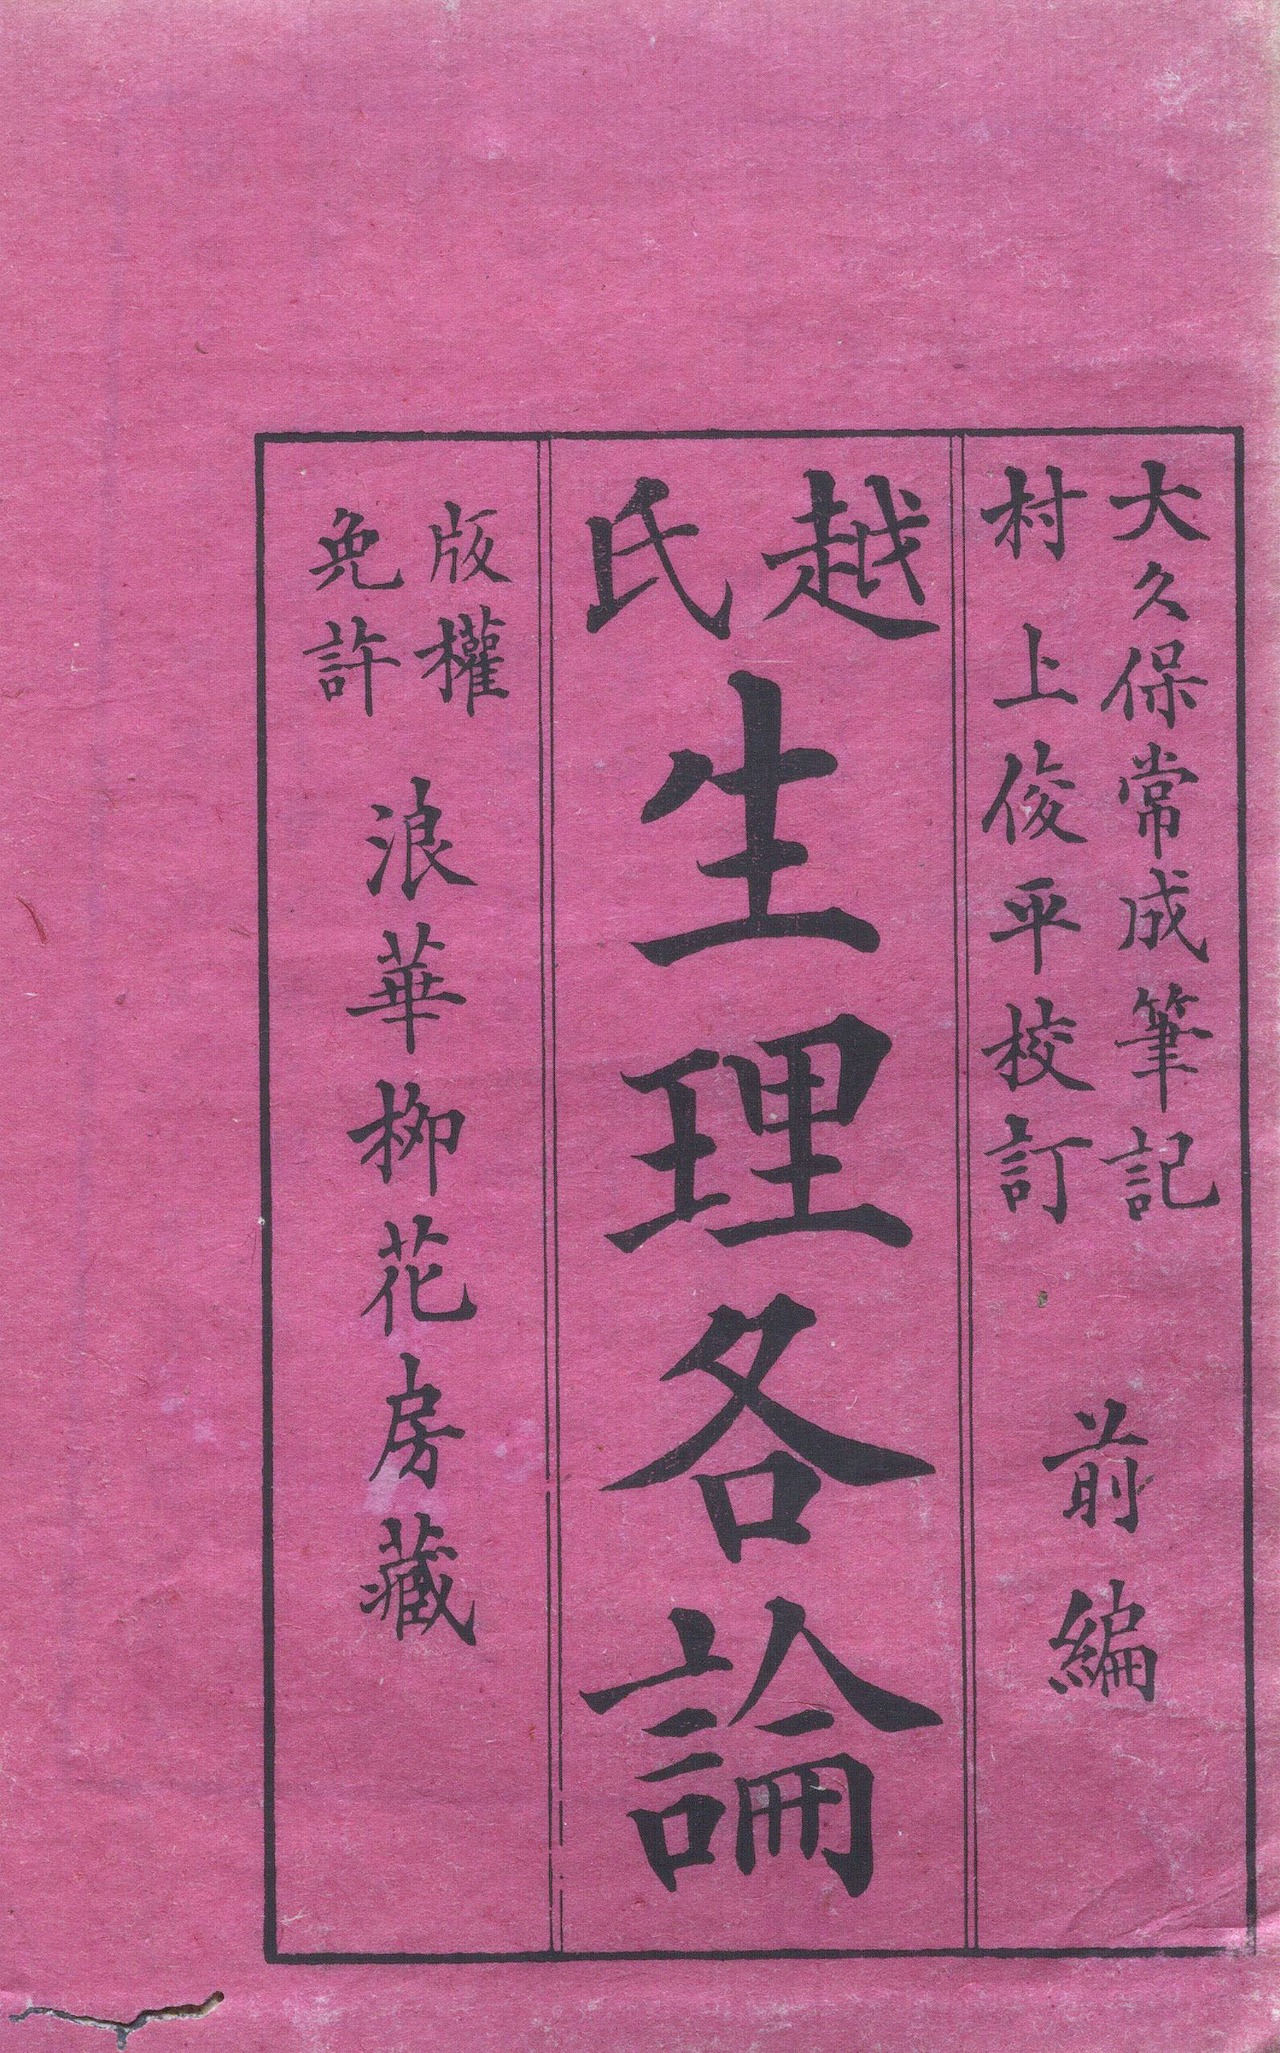 大久保常成筆記
村上俊平校訂
前編
越氏
生理各論
版權
免許
浪華栁花房藏